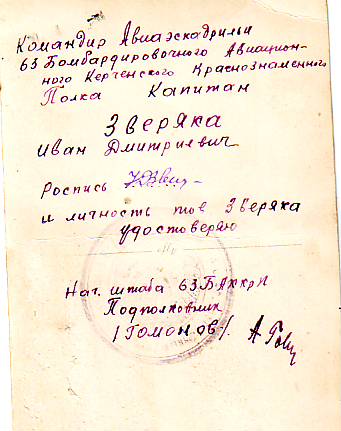 Командир Авиаэскадрильи
63 Бомбардировочного Авиацион-
ного Керченского Краснознаменного
Полка Капитан
Зверяка
Иван Дмитриевич
Роспись
и личность тов Зверяка
удостоверяю
Нач. штаба 63 БАККрП
Подполковник
/Гоманов/.